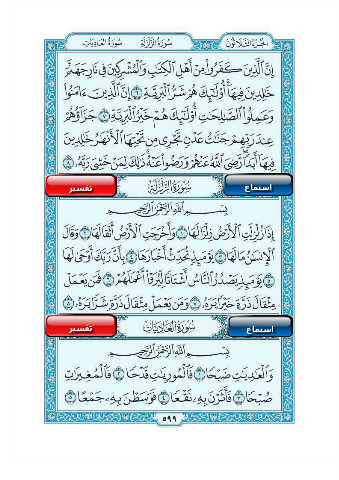 الجزء الثلاثون سورة الزلزلة سورة العاديات
إِنَّ ٱلَّذِينَ كَفَرُوا۟ مِنْ أَهْلِ ٱلْكِتَٰبِ وَٱلْمُشْرِكِينَ فِى نَارِ جَهَنَّمَ
خَٰلِدِينَ فِيهَآ أُو۟لَٰٓئِكَ هُمْ شَرُّ ٱلْبَرِيَّةِ ٦ إِنَّ ٱلَّذِينَ ءَامَنُوا۟
وَعَمِلُوا۟ ٱلصَّٰلِحَٰتِ أُو۟لَٰٓئِكَ هُمْ خَيْرُ ٱلْبَرِيَّةِ ٧ جَزَآؤُهُمْ
عِندَ رَبِّهِمْ جَنَّٰتُ عَدْنٍ تَجْرِى مِن تَحْتِهَا ٱلْأَنْهَٰرُ خَٰلِدِينَ
فِيهَآ أَبَدًا رَّضِىَ ٱللَّهُ عَنْهُمْ وَرَضُوا۟ عَنْهُ ذَٰلِكَ لِمَنْ خَشِىَ رَبَّهُۥ ٨
استماع سورة الزلزلة تفسير
بِسْمِ ٱللَّهِ ٱلرَّحْمَٰنِ ٱلرَّحِيمِ
إِذَا زُلْزِلَتِ ٱلْأَرْضُ زِلْزَالَهَا ١ وَأَخْرَجَتِ ٱلْأَرْضُ أَثْقَالَهَا ٢ وَقَالَ
ٱلْإِنسَٰنُ مَا لَهَا ٣ يَوْمَئِذٍ تُحَدِّثُ أَخْبَارَهَا ٤ بِأَنَّ رَبَّكَ أَوْحَىٰ لَهَا
٥ يَوْمَئِذٍ يَصْدُرُ ٱلنَّاسُ أَشْتَاتًا لِّيُرَوْا۟ أَعْمَٰلَهُمْ ٦ فَمَن يَعْمَلْ
مِثْقَالَ ذَرَّةٍ خَيْرًا يَرَهُۥ ٧ وَمَن يَعْمَلْ مِثْقَالَ ذَرَّةٍ شَرًّا يَرَهُۥ ٨
استماع سورة العاديات تفسير
بِسْمِ ٱللَّهِ ٱلرَّحْمَٰنِ ٱلرَّحِيمِ
وَٱلْعَٰدِيَٰتِ ضَبْحًا ١ فَٱلْمُورِيَٰتِ قَدْحًا ٢ فَٱلْمُغِيرَٰتِ
صُبْحًا ٣ فَأَثَرْنَ بِهِۦ نَقْعًا ٤ فَوَسَطْنَ بِهِۦ جَمْعًا ٥
٥٩٩